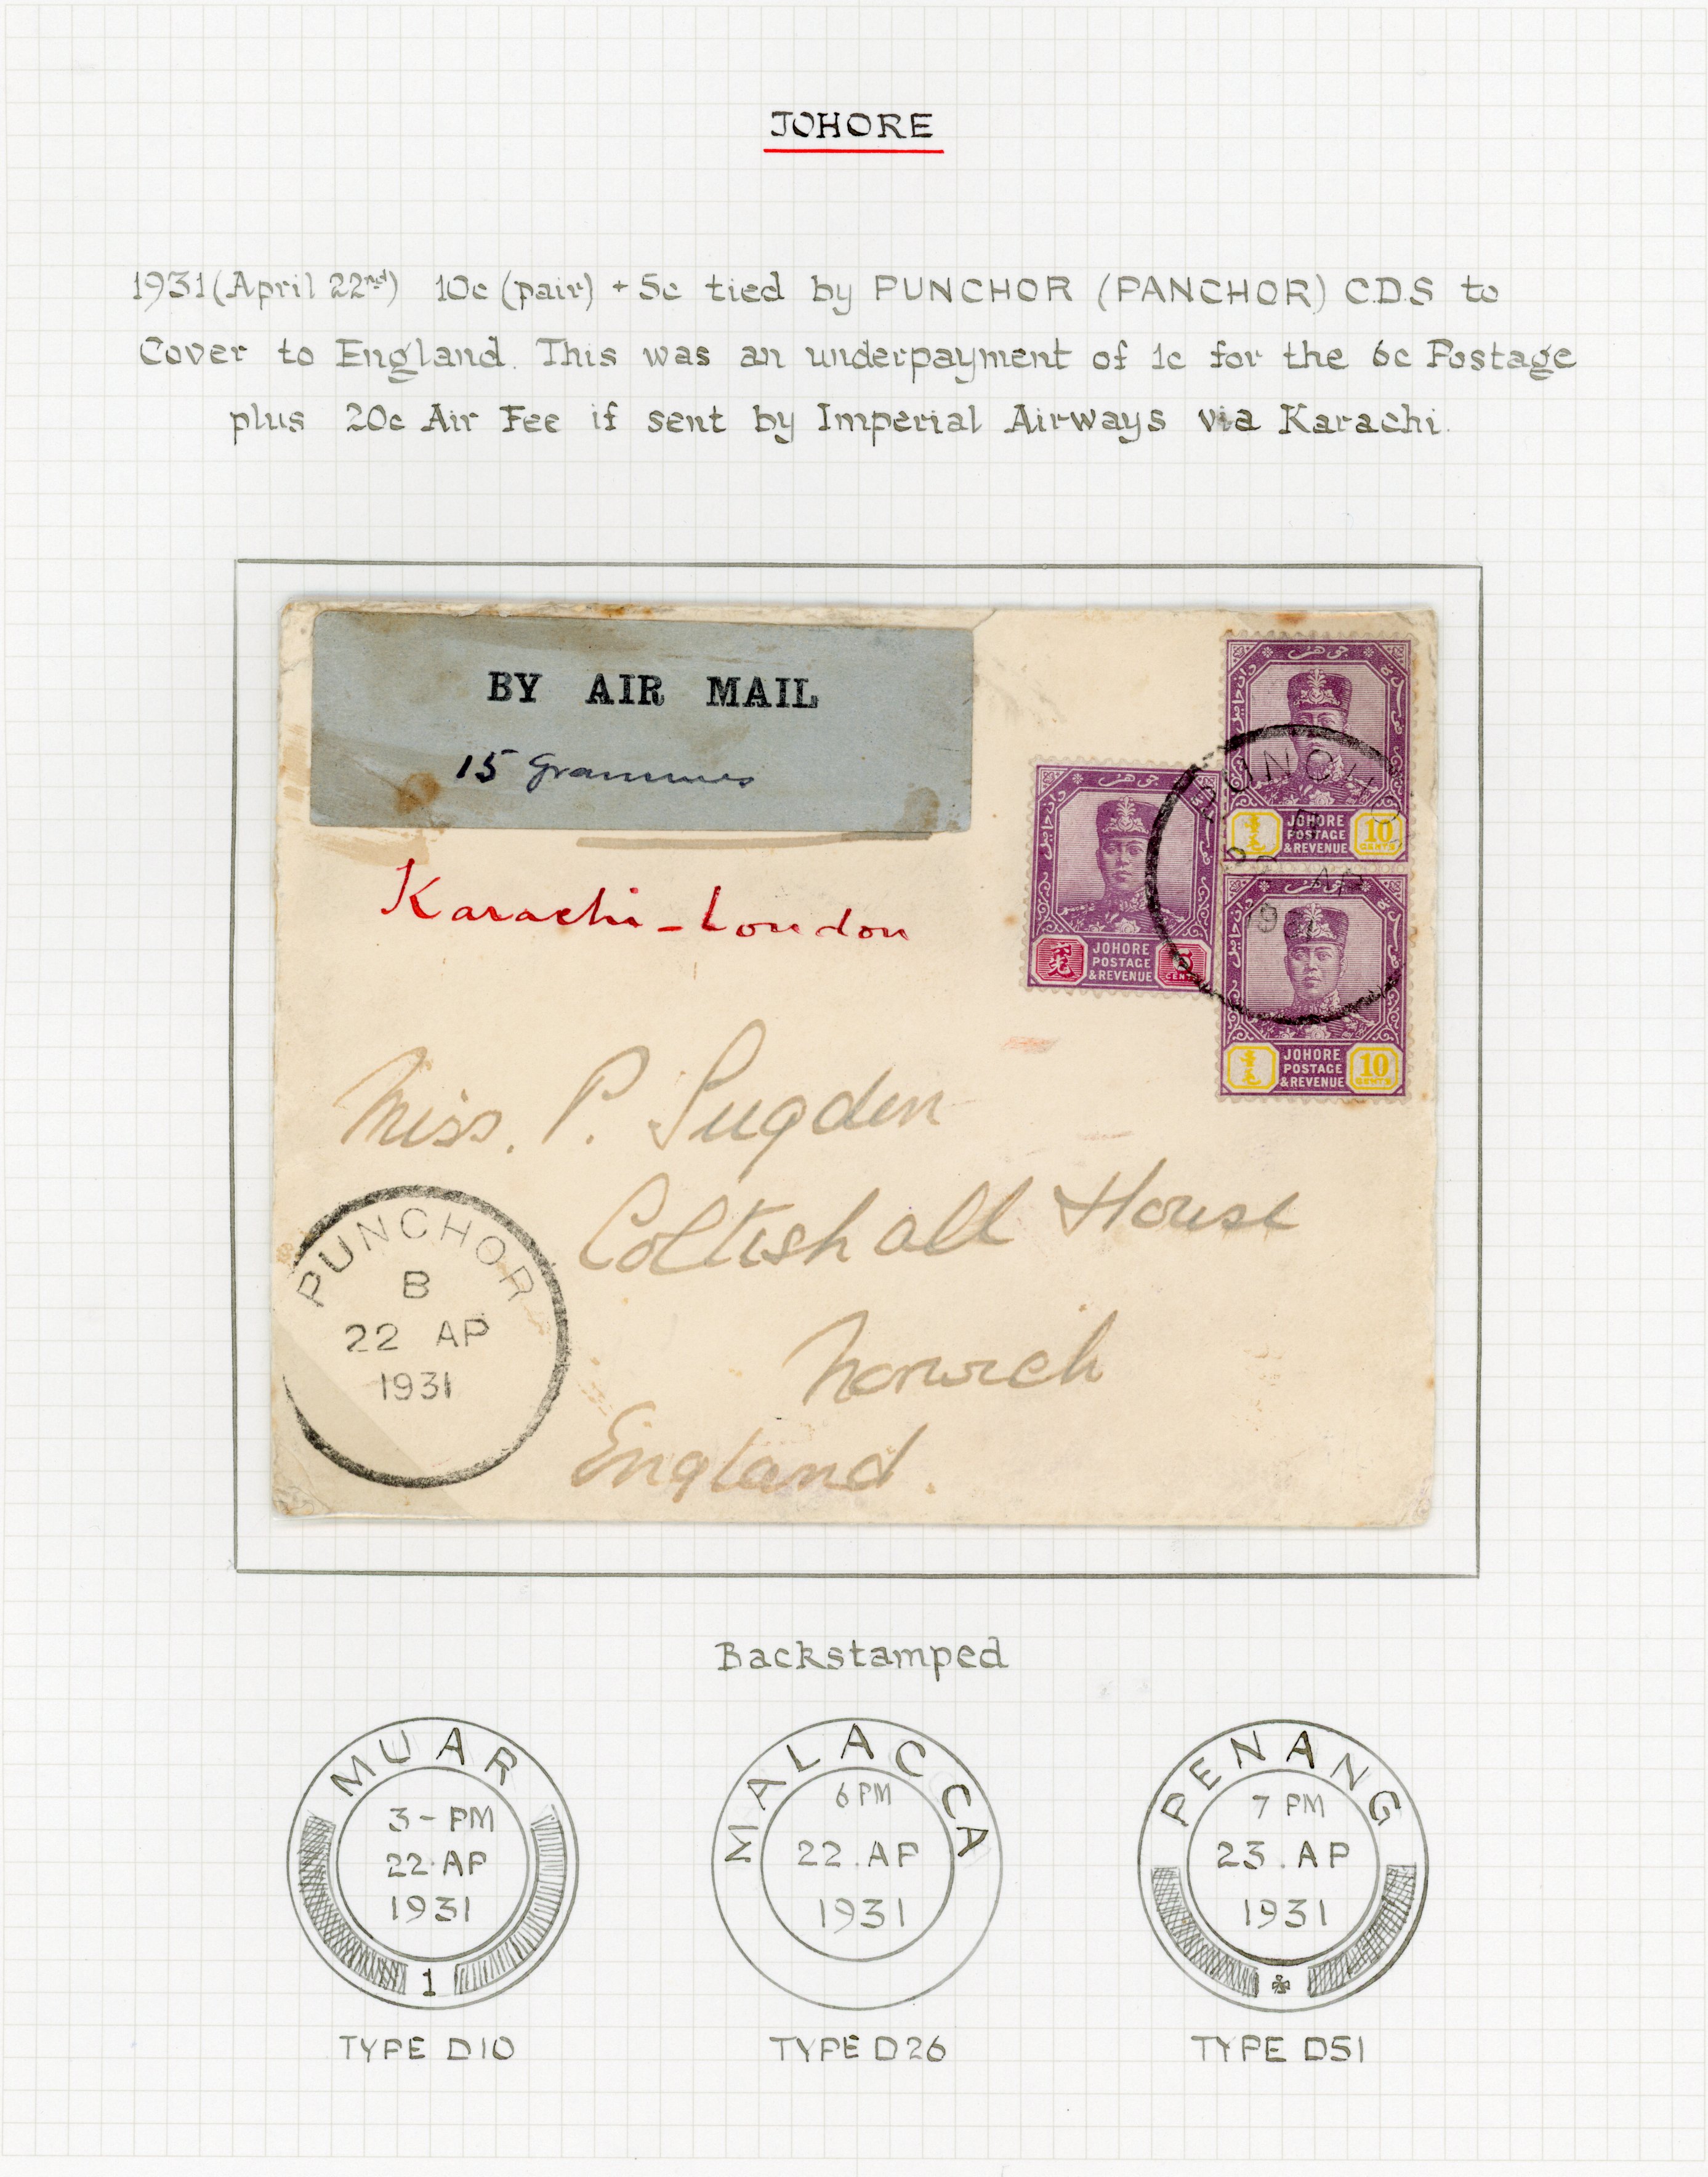 JOHORE
1931 (April 22nd) 10c (pair) + 5c tied by PUNCHOR (PANCHOR) C.D.S to
Cover to England. This was an underpayment of 1c for the 6c Postage
plus 20c Air Fee if sent by Imperial Airways via Karachi.
BY AIR MAIL
15 grammes
Karachi - London
جوهر
JOHORE
POSTAGE
& REVENUE
10
CENTS
جوهر
JOHORE
POSTAGE
& REVENUE
CENTS
جوهر
JOHORE
POSTAGE
& REVENUE
10
CENTS
PUNCHO
22 AP
Miss. P. Sugden
Coltishall House
Norwich
England.
PUNCHOR
B
22 AP
1931
Backstamped
MUAR
3 - PM
22 AP
1931
1
TYPE D10
MALACCA
6 PM
22 . AP
1931
TYPE D26
PENANG
7 PM
23 . AP
1931
TYPE D51